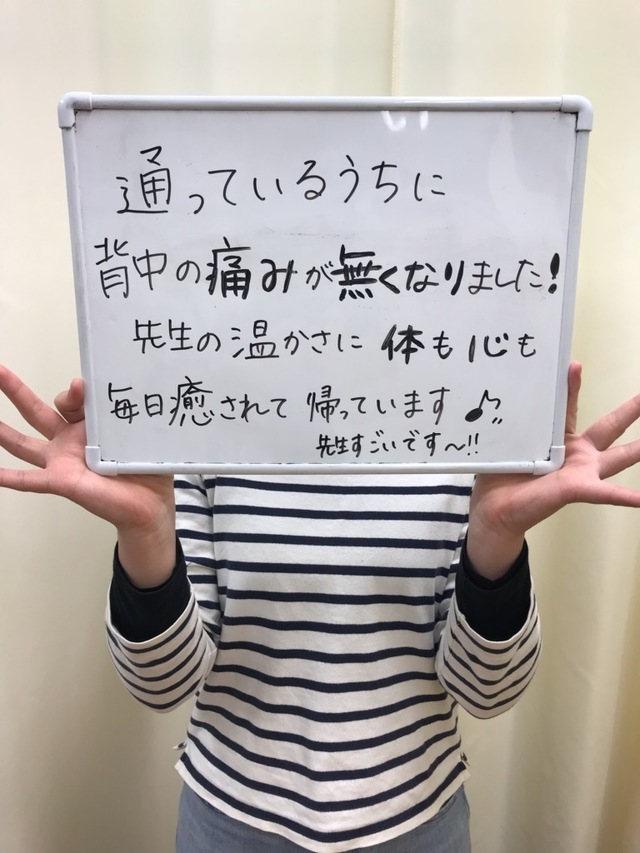 通っているうちに
背中の痛みが無くなりました!
先生の温かさに 体も心も
毎日癒されて 帰っています♪"
先生すごいです〜!!